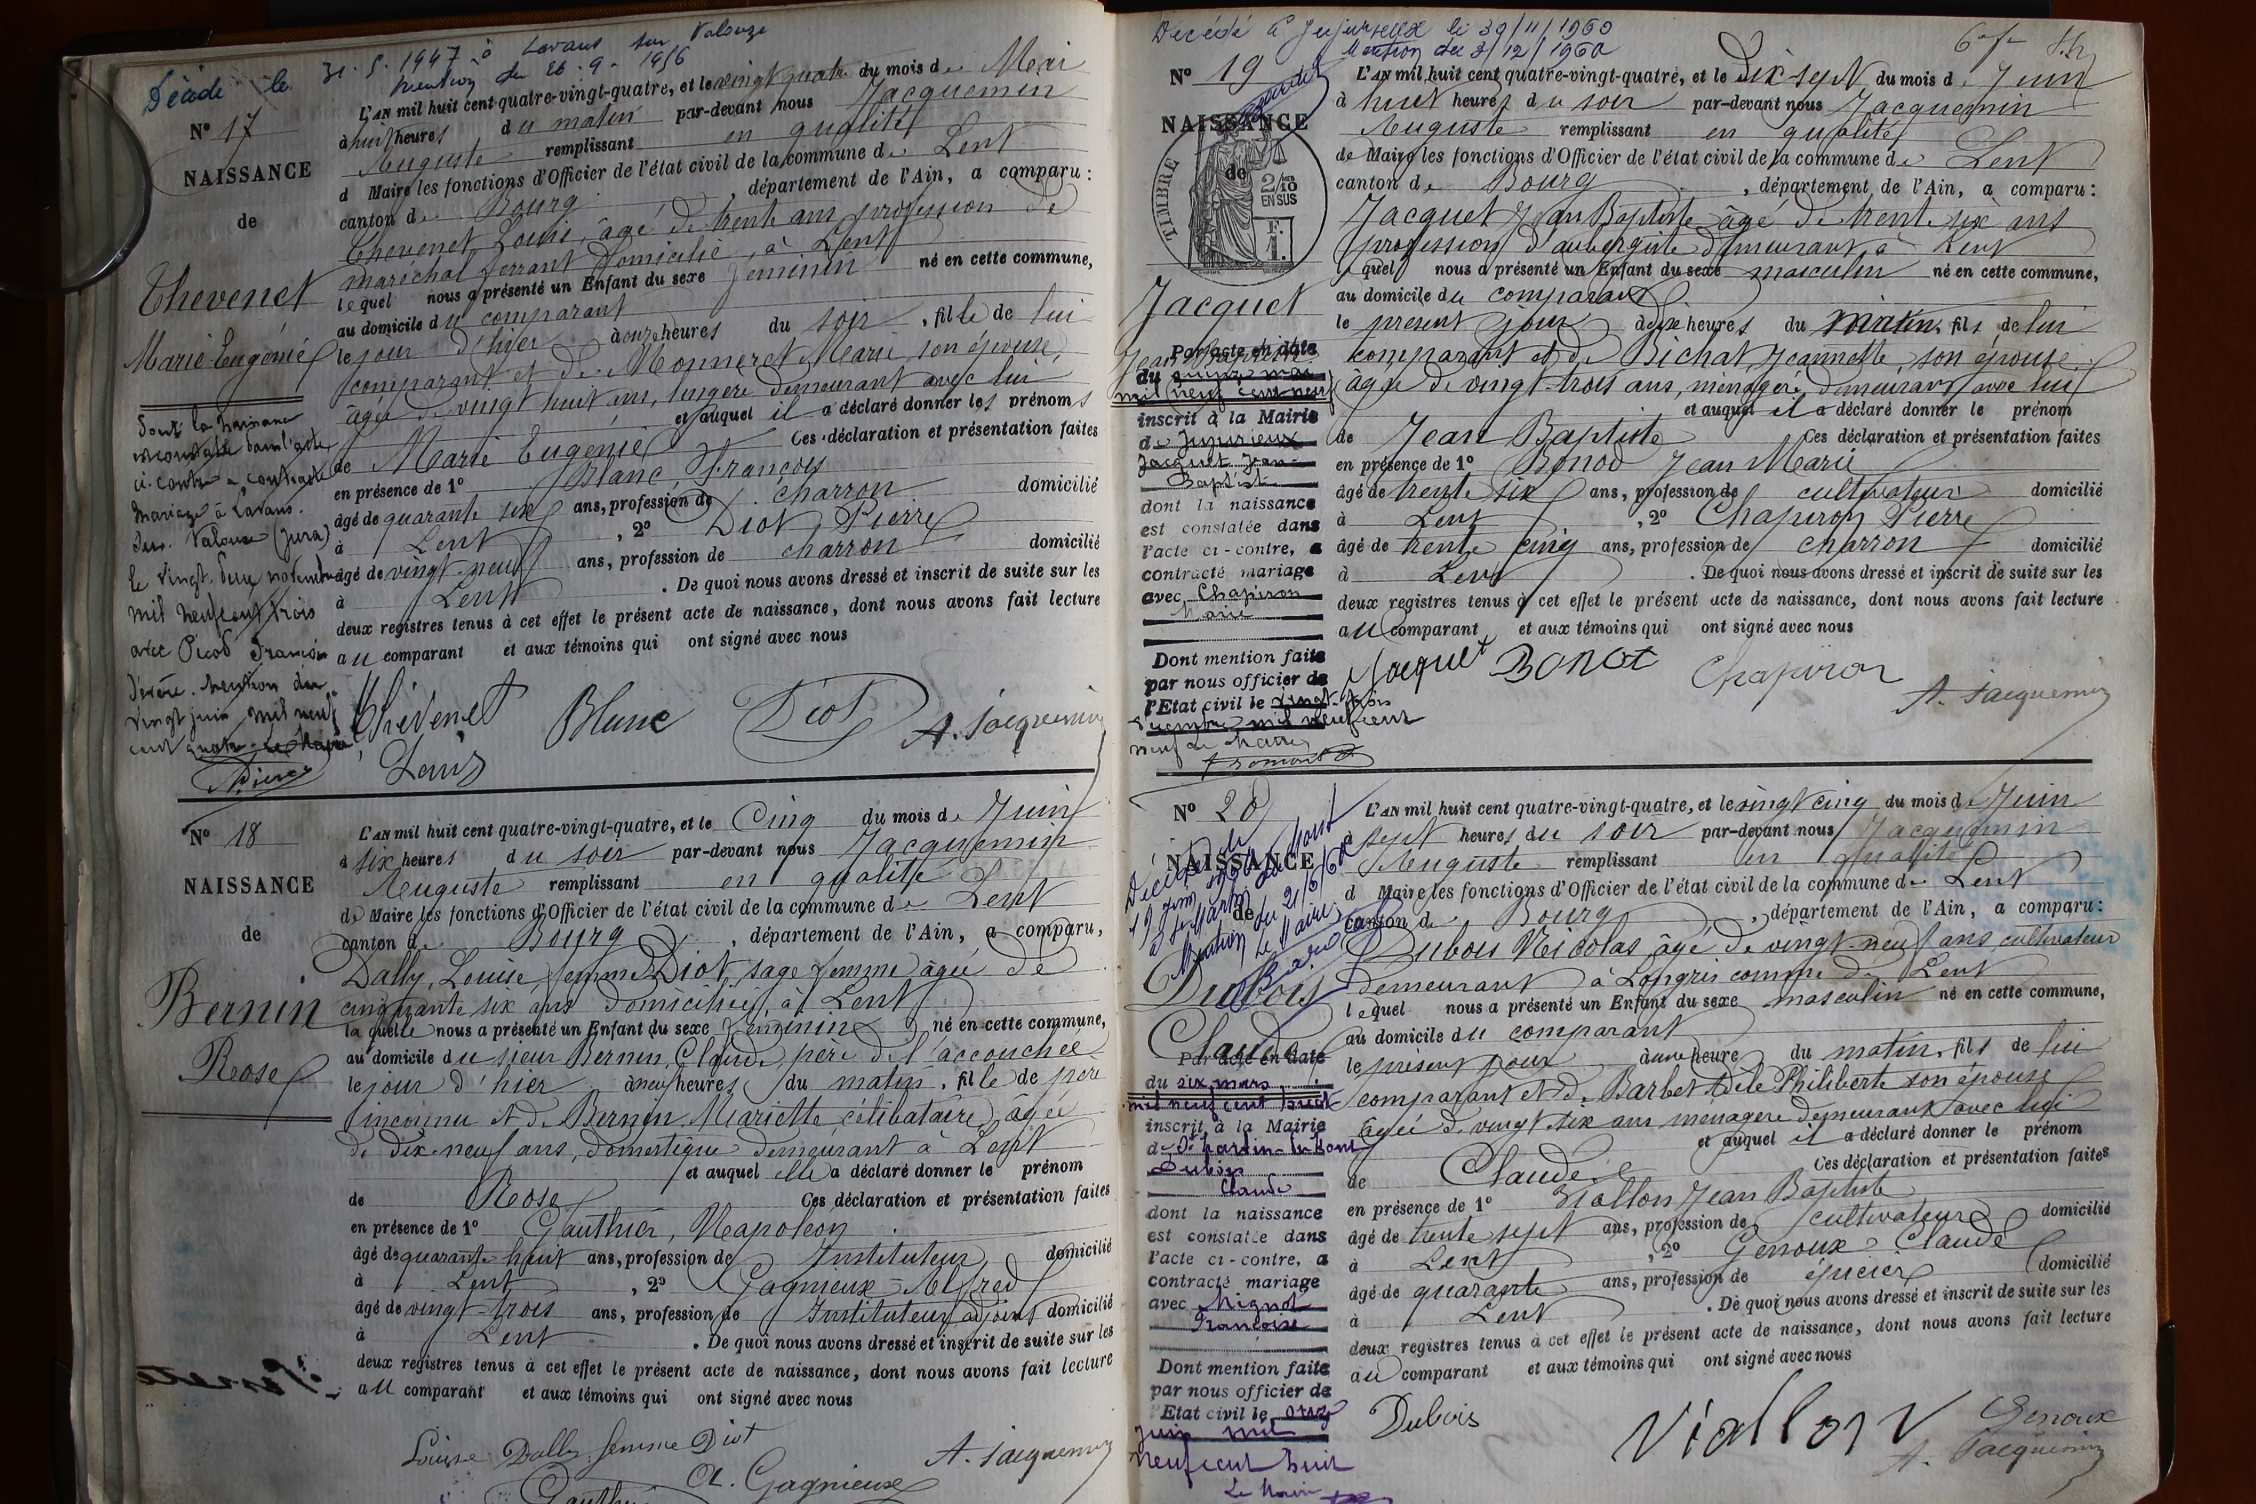 Décédé le 31.5.1947 à Lavans sur Valouze
mention du 26.9.1956
N° 17
NAISSANCE
de
Thevenet
Marie Eugénie
Dont la naissance
est constatée dans l'acte
ci-contre a contracté
mariage à Lavans
sur Valouse (Jura)
le vingt deux novembre
mil neuf cent trois
avec Picod François
Désiré. Mention du
vingt juin mil neuf
cent quatre. Le Maire
L'AN mil huit cent quatre-vingt-quatre, et le vingt quatre du mois de Mai
à huit heures du matin par-devant nous Jacquemin
Auguste remplissant en qualité
d Maire les fonctions d'Officier de l'état civil de la commune de Lent
canton de Bourg, département de l'Ain, a comparu:
Thevenet Louis, âgé de trente ans profession de
maréchal ferrant domicilié à Lent
lequel nous a présenté un Enfant du sexe féminin né en cette commune,
au domicile du comparant
le jour d'hier à onze heures du soir, fille de lui
comparant et de Monneret Marie son épouse,
âgée de vingt huit ans, lingère demeurant avec lui
et auquel il a déclaré donner les prénoms
de Marie Eugénie Ces déclaration et présentation faites
en présence de 1° Blanc, François
âgé de quarante six ans, profession de charron domicilié
à Lent, 2° Diot Pierre
âgé de vingt-neuf ans, profession de charron domicilié
à Lent. De quoi nous avons dressé et inscrit de suite sur les
deux registres tenus à cet effet le présent acte de naissance, dont nous avons fait lecture
au comparant et aux témoins qui ont signé avec nous
Thévenet Blanc Diot A. Jacquemin
Louis
N° 18
NAISSANCE
de
Bernin
Rose
L'AN mil huit cent quatre-vingt-quatre, et le Cinq du mois de Juin
à six heures du soir par-devant nous Jacquemin
Auguste remplissant en qualité
de Maire les fonctions d'Officier de l'état civil de la commune de Lent
canton de Bourg, département de l'Ain, a comparu,
Dally, Louise, femme Diot, sage femme âgée de
cinquante six ans domiciliée à Lent
laquelle nous a présenté un Enfant du sexe féminin né en cette commune,
au domicile du sieur Bernin, Claude, père de l'accouchée
le jour d'hier à neuf heures du matin, fille de père
inconnu et de Bernin Mariette célibataire, âgée
de dix-neuf ans, domestique demeurant à Lent
et auquel elle a déclaré donner le prénom
de Rose Ces déclaration et présentation faites
en présence de 1° Gauthier, Napoléon
âgé de quarante-huit ans, profession de Instituteur domicilié
à Lent, 2° Gagnieux Alfred
âgé de vingt-trois ans, profession de Instituteur adjoint domicilié
à Lent. De quoi nous avons dressé et inscrit de suite sur les
deux registres tenus à cet effet le présent acte de naissance, dont nous avons fait lecture
au comparant et aux témoins qui ont signé avec nous
Louise Dally femme Diot A. Jacquemin
Gauthier A. Gagnieux
Décédé à Jujurieux le 30/11/1960
Mention du 3/12/1960
N° 19
NAISSANCE
de
TIMBRE
2/10
EN SUS
F.
1.
Jacquet
Jean Baptiste
Par acte en date
du quinze mai
mil neuf cent neuf
inscrit à la Mairie
de Jujurieux
Jacquet Jean
Baptiste
dont la naissance
est constatée dans
l'acte ci-contre, a
contracté mariage
avec Chapiron
Marie
Dont mention faite
par nous officier de
l'Etat civil le vingt-trois
mil neuf cent
neuf Le Maire
L'AN mil huit cent quatre-vingt-quatre, et le Dix-sept du mois de Juin
à huit heures du soir par-devant nous Jacquemin
Auguste remplissant en qualité
de Maire les fonctions d'Officier de l'état civil de la commune de Lent
canton de Bourg, département de l'Ain, a comparu:
Jacquet Jean Baptiste âgé de trente six ans
profession d'aubergiste demeurant à Lent
lequel nous a présenté un Enfant du sexe masculin né en cette commune,
au domicile du comparant
le présent jour à dix heures du matin, fils de lui
comparant et de Bichat, Jeannette, son épouse
âgée de vingt-trois ans, ménagère demeurant avec lui
et auquel il a déclaré donner le prénom
de Jean Baptiste Ces déclaration et présentation faites
en présence de 1° Bonod Jean Marie
âgé de trente six ans, profession de cultivateur domicilié
à Lent, 2° Chapiron Pierre
âgé de trente cinq ans, profession de charron domicilié
à Lent. De quoi nous avons dressé et inscrit de suite sur les
deux registres tenus à cet effet le présent acte de naissance, dont nous avons fait lecture
au comparant et aux témoins qui ont signé avec nous
Jacquet Bonot Chapiron
A. Jacquemin
N° 20
NAISSANCE
de
Décédé le
19 Juin 1960
à St Martin du Mont
Mention du 21/6/60
Le Maire
Dubois
Claude
Par acte en date
du six mars
mil neuf cent huit
inscrit à la Mairie
de St Martin-du-Mont
Dubois
Claude
dont la naissance
est constatée dans
l'acte ci-contre, a
contracté mariage
avec Mignot
Françoise
Dont mention faite
par nous officier de
l'Etat civil le onze
juin mil
neuf cent huit
Le Maire
L'AN mil huit cent quatre-vingt-quatre, et le vingt cinq du mois de Juin
à sept heures du soir par-devant nous Jacquemin
Auguste remplissant en qualité
d Maire les fonctions d'Officier de l'état civil de la commune de Lent
canton de Bourg, département de l'Ain, a comparu:
Dubois Nicolas âgé de vingt-neuf ans cultivateur
demeurant à Longris commune de Lent
lequel nous a présenté un Enfant du sexe masculin né en cette commune,
au domicile du comparant
le présent jour à une heure du matin, fils de lui
comparant et de Barbet Philiberte son épouse
âgée de vingt-six ans ménagère demeurant avec lui
et auquel il a déclaré donner le prénom
de Claude Ces déclaration et présentation faites
en présence de 1° Viallon Jean Baptiste
âgé de trente sept ans, profession de cultivateur domicilié
à Lent, 2° Genoux Claude
âgé de quarante ans, profession de épicier domicilié
à Lent. De quoi nous avons dressé et inscrit de suite sur les
deux registres tenus à cet effet le présent acte de naissance, dont nous avons fait lecture
au comparant et aux témoins qui ont signé avec nous
Dubois Viallon Genoux
A. Jacquemin